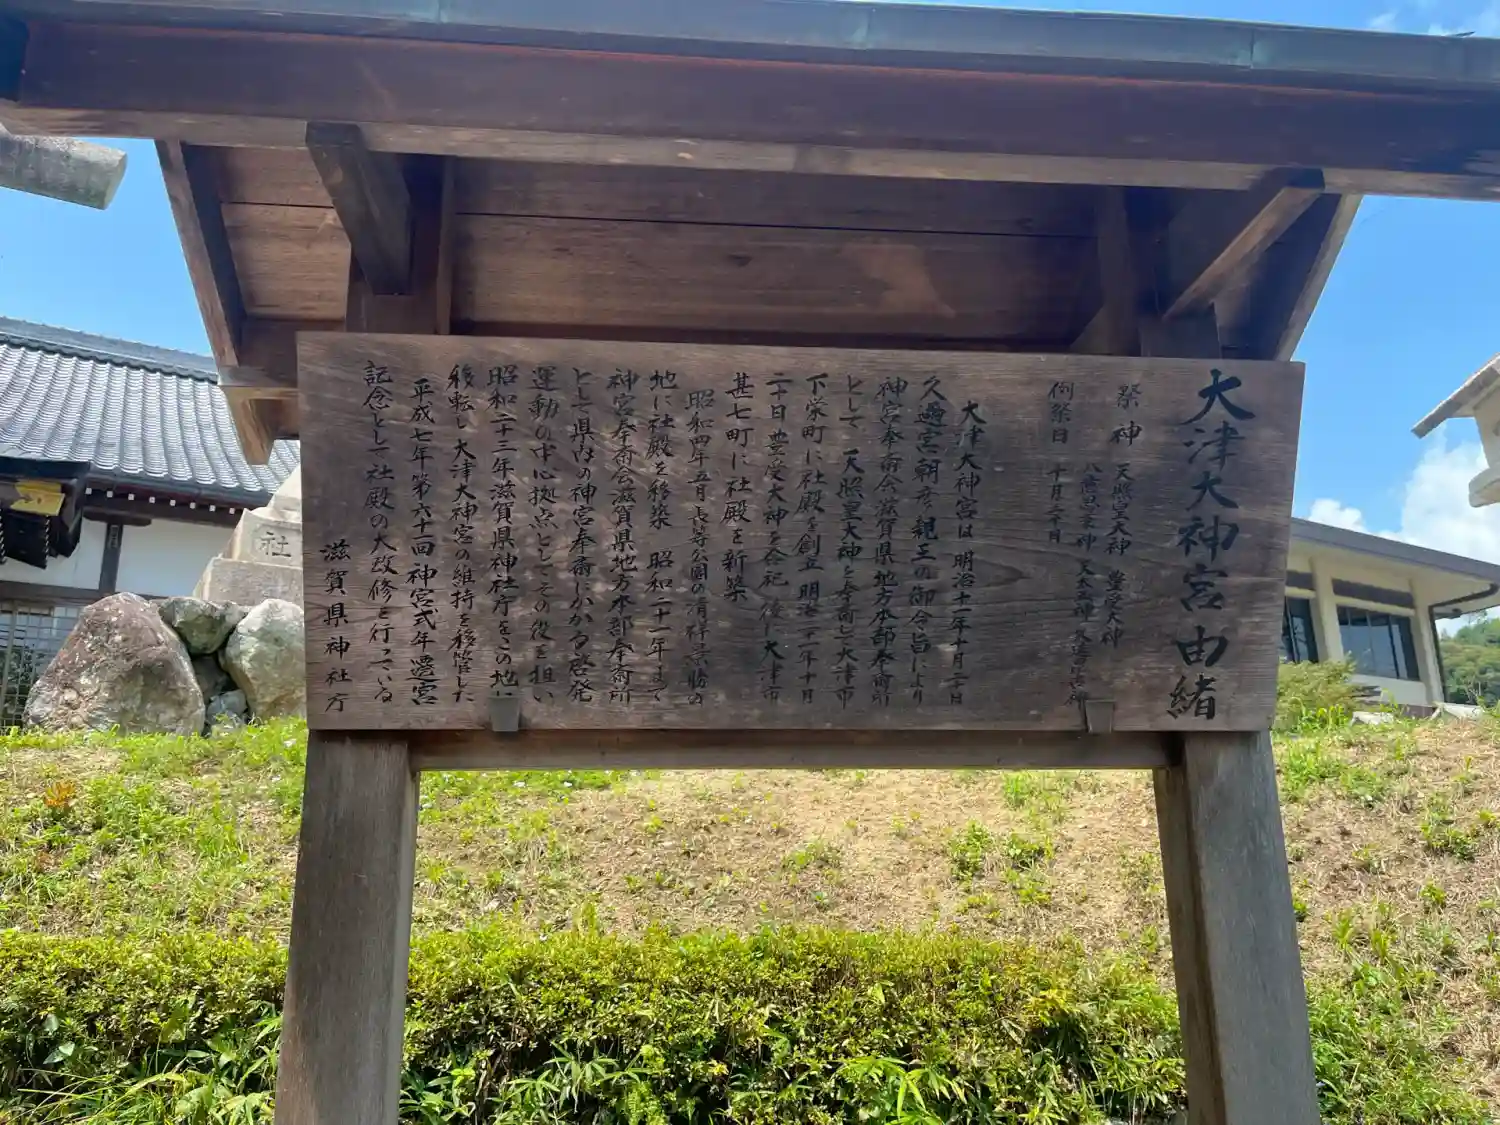 大津大神宮由緒
祭神 天照皇大神 豊受大神
八意思兼神 天太玉神
例祭日 十月二十日
大津大神宮は明治十一年十月二十日
久邇宮朝彦親王の御令旨により
神宮奉斎会滋賀県地方本部奉斎所
として天照皇大神を奉斎し大津市
下栄町に社殿を創立 明治二十一年十月
二十日豊受大神を合祀 後 大津市
甚七町に社殿を新築
昭和四年五月長等公園の清祥景勝の
地に社殿を移築 昭和二十一年まで
神宮奉斎会滋賀県地方本部奉斎所
として県内の神宮奉斎にかかる啓発
運動の中心拠点としてその役を担い
昭和二十三年滋賀県神社庁をこの地に
移転し大津大神宮の維持を移管した
平成七年第六十一回神宮式年遷宮
記念として社殿の大改修を行っている
滋賀県神社庁
社